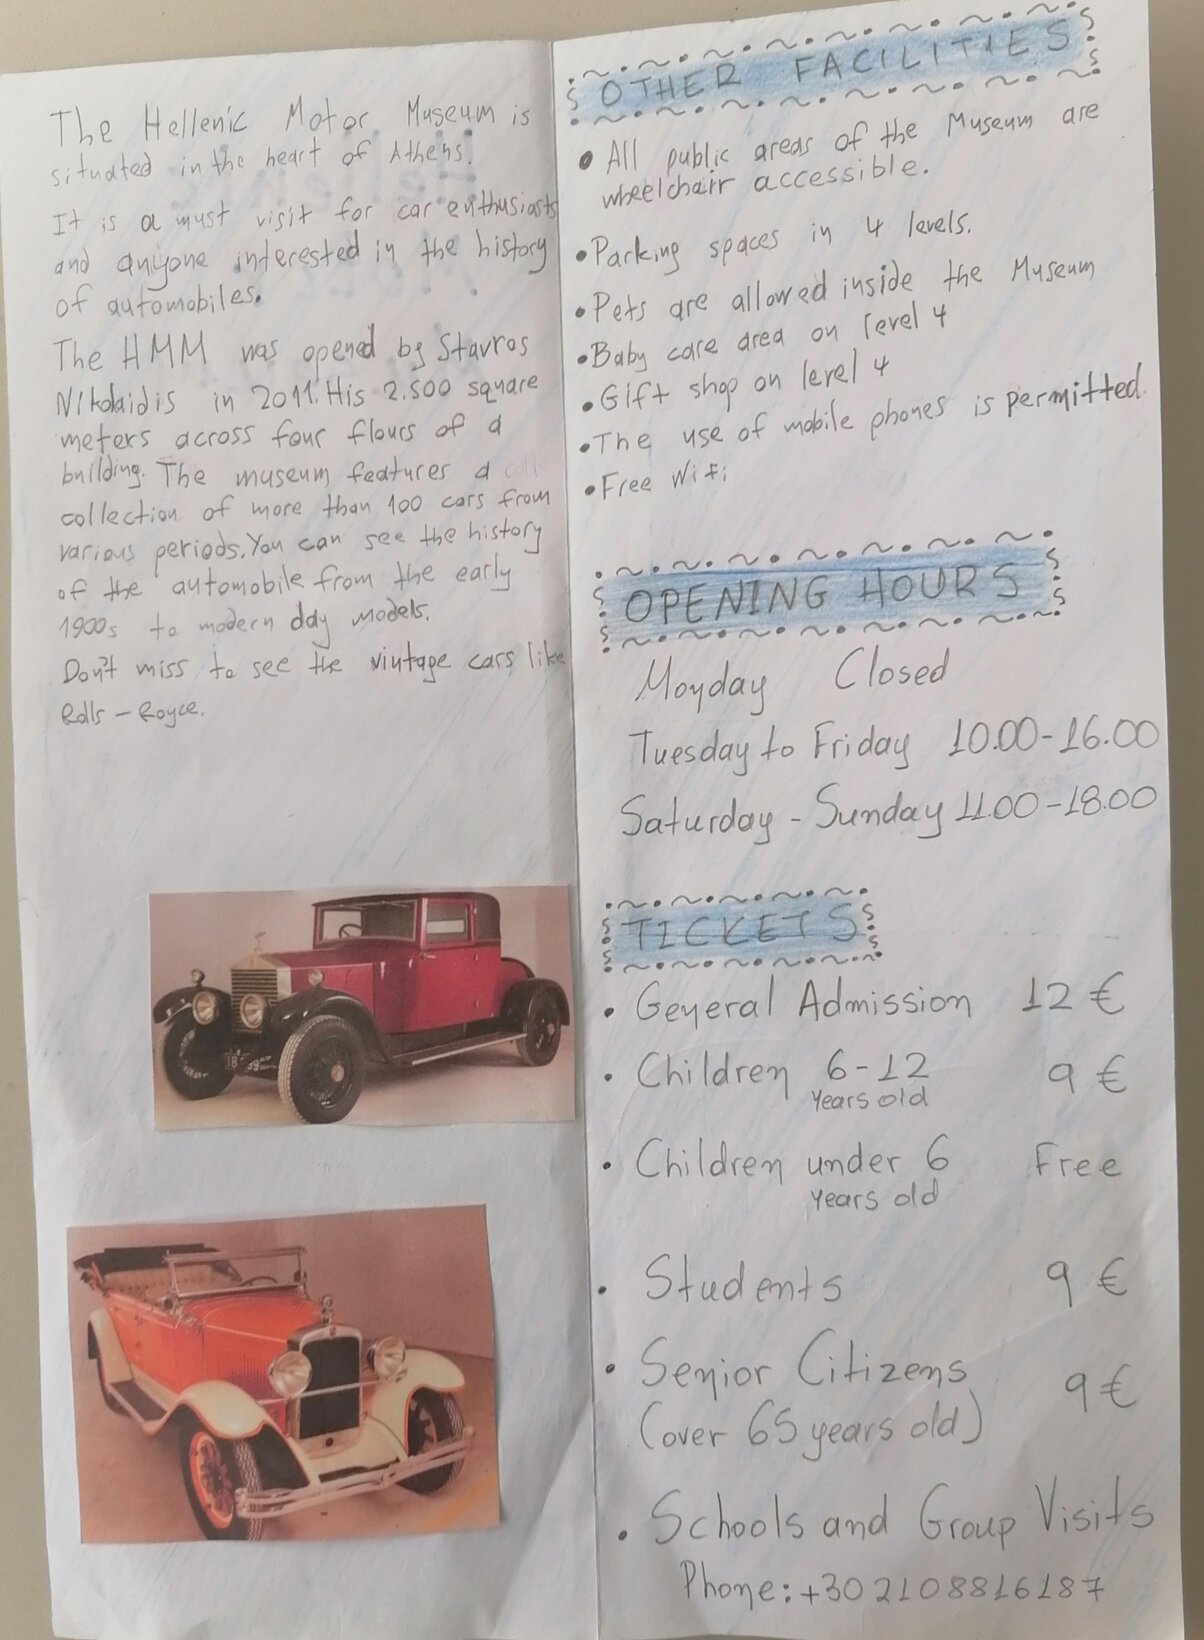 The Hellenic Motor Museum is
situated in the heart of Athens.
It is a must visit for car enthusiasts
and anyone interested in the history
of automobiles.
The HMM was opened by Stavros
Nikolaidis in 2011. His 2.500 square
meters across four flours of a
building. The museum features a
collection of more than 100 cars from
various periods. You can see the history
of the automobile from the early
1900s to modern day models.
Don't miss to see the vintage cars like
Rolls - Royce.
OTHER FACILITIES
• All public areas of the Museum are
wheelchair accessible.
• Parking spaces in 4 levels.
• Pets are allowed inside the Museum
• Baby care area on level 4
• Gift shop on level 4
• The use of mobile phones is permitted.
• Free WiFi
OPENING HOURS
Monday Closed
Tuesday to Friday 10.00-16.00
Saturday - Sunday 11.00-18.00
TICKETS
• General Admission 12 €
• Children 6-12 9 €
years old
• Children under 6 Free
years old
• Students 9 €
• Senior Citizens 9 €
(over 65 years old)
• Schools and Group Visits
Phone: +302108816187